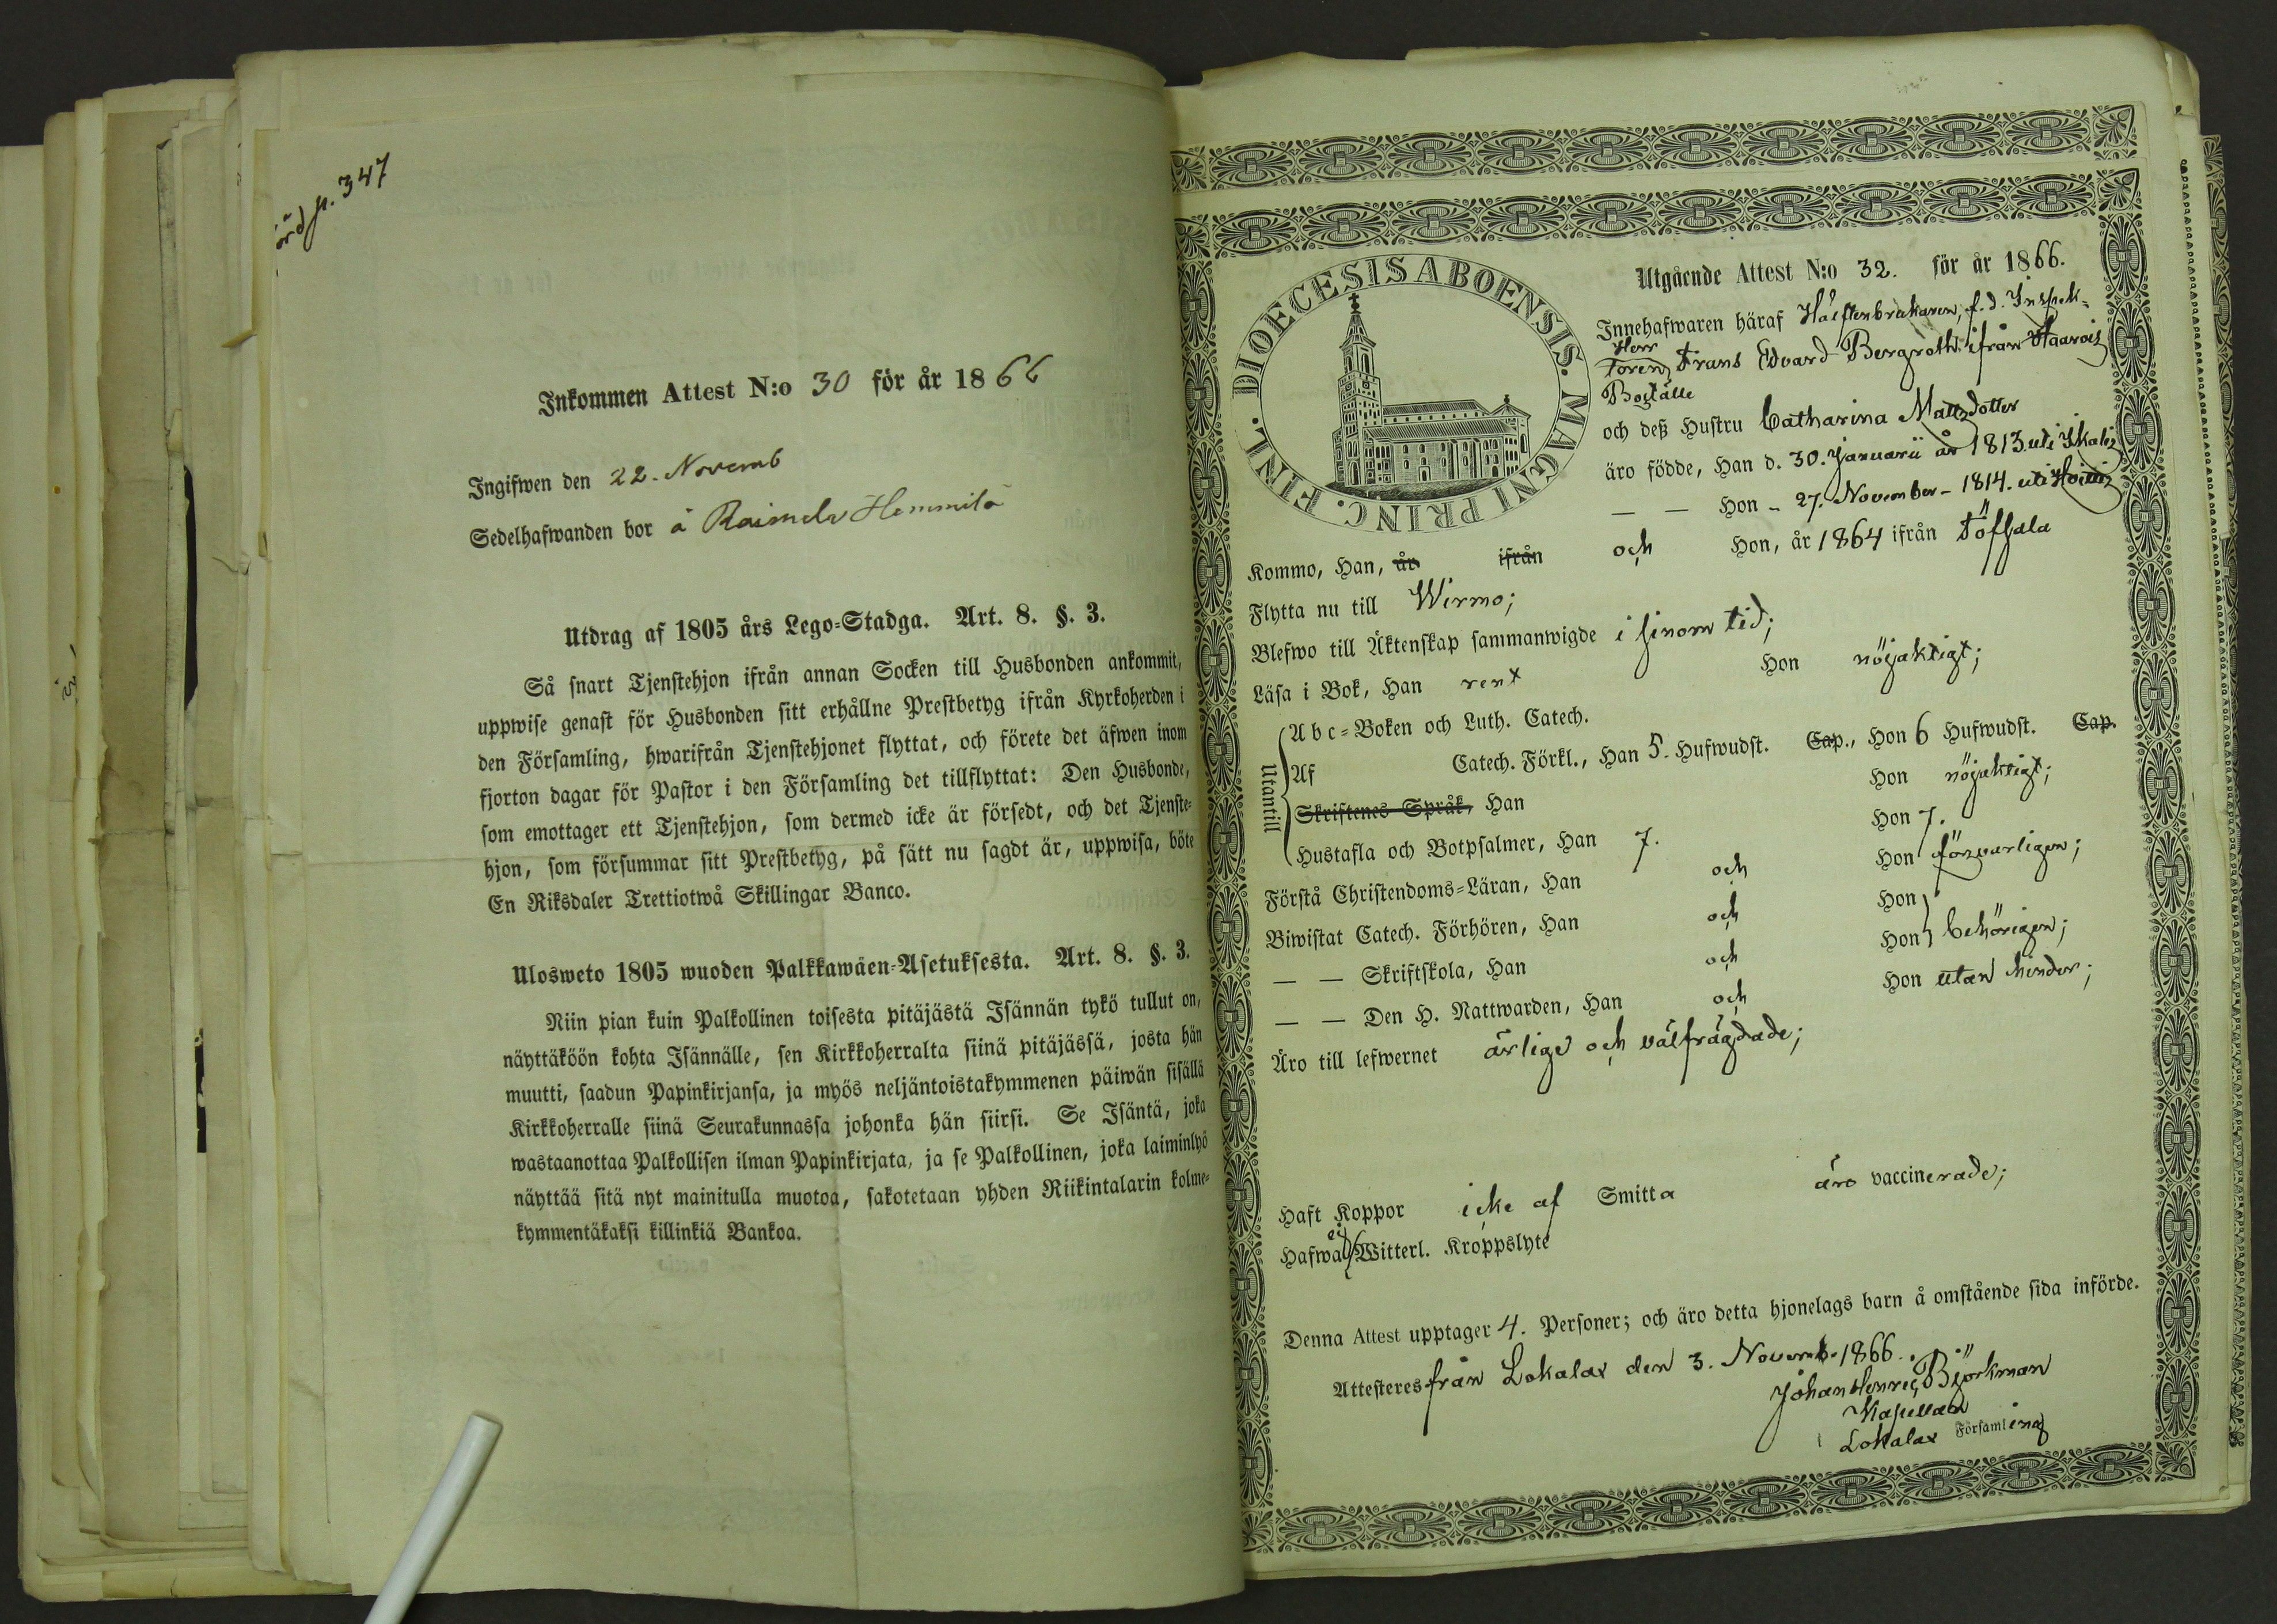 förd p. 347
Inkommen Attest N:o 30 för år 1866
Ingifwen den 22. Novemb
Sedelhafwanden bor å Raimela Hemmilä
Utdrag af 1805 års Lego-Stadga. Art. 8. §. 3.
Så snart Tjenstehjon ifrån annan Socken till Husbonden ankommit,
uppwise genast för Husbonden sitt erhållne Prestbetyg ifrån Kyrkoherden i
den Församling, hwarifrån Tjenstehjonet flyttat, och förete det äfwen inom
fjorton dagar för Pastor i den Församling det tillflyttat: Den Husbonde,
som emottager ett Tjenstehjon, som dermed icke är försedt, och det Tjenste-
hjon, som försummar sitt Prestbetyg, på sätt nu sagdt är, uppwisa, böte
En Riksdaler Trettiotwå Skillingar Banco.
Ulosweto 1805 wuoden Palkkawäen-Asetuksesta. Art. 8. §. 3.
Niin pian kuin Palkollinen toisesta pitäjästä Isännän tykö tullut on,
näyttäköön kohta Isännälle, sen Kirkkoherralta siinä pitäjässä, josta hän
muutti, saadun Papinkirjansa, ja myös neljäntoistakymmenen päiwän sisällä
Kirkkoherralle siinä Seurakunnassa johonka hän siirsi. Se Isäntä, joka
wastaanottaa Palkollisen ilman Papinkirjata, ja se Palkollinen, joka laiminlyö
näyttää sitä nyt mainitulla muotoa, sakotetaan yhden Riikintalarin kolme-
kymmentäkaksi killinkiä Bankoa.
DIOECESIS ABOENSIS. MAGNI PRINC. FINL.
Utgående Attest N:o 32. för år 1866.
Innehafwaren häraf Hälftenbrukaren, f.d. Inspek-
Herr
toren Frans Edvard Bergroth ifrån Haarois
Boställe
och deß Hustru Catharina Mattsdotter
äro födde, Han d. 30. Januarii år 1813 uti Ikalis
— — Hon - 27. November - 1814. uti Hvittis
Kommo, Han, år ifrån och Hon, år 1864 ifrån Töfsala
Flytta nu till Wirmo;
Blefwo till Äktenskap sammanwigde i sinom tid;
Läsa i Bok, Han rent Hon nöjaktigt;
Utantill
Abc-Boken och Luth. Catech.
Af Catech. Förkl., Han 5. Hufwudst. Cap., Hon 6 Hufwudst. Cap.
Skriftenes Språk, Han Hon nöjaktigt;
Hustafla och Botpsalmer, Han 7. Hon 7.
Förstå Christendoms-Läran, Han och Hon försvarligen;
Biwistat Catech. Förhören, Han och Hon
— — Skriftskola, Han och Hon behörigen;
— — Den H. Nattwarden, Han och Hon utan hinder;
Äro till lefwernet ärlige och välfrägdade;
Haft Koppor icke af Smitta äro vaccinerade;
ej
Hafwa Witterl. Kroppslyte
Denna Attest upptager 4. Personer; och äro detta hjonelags barn å omstående sida införde.
Attesteres från Lokalax den 3. Novemb. 1866.
Johan Henric Björkman
Kapellan
i Lokalax Församling